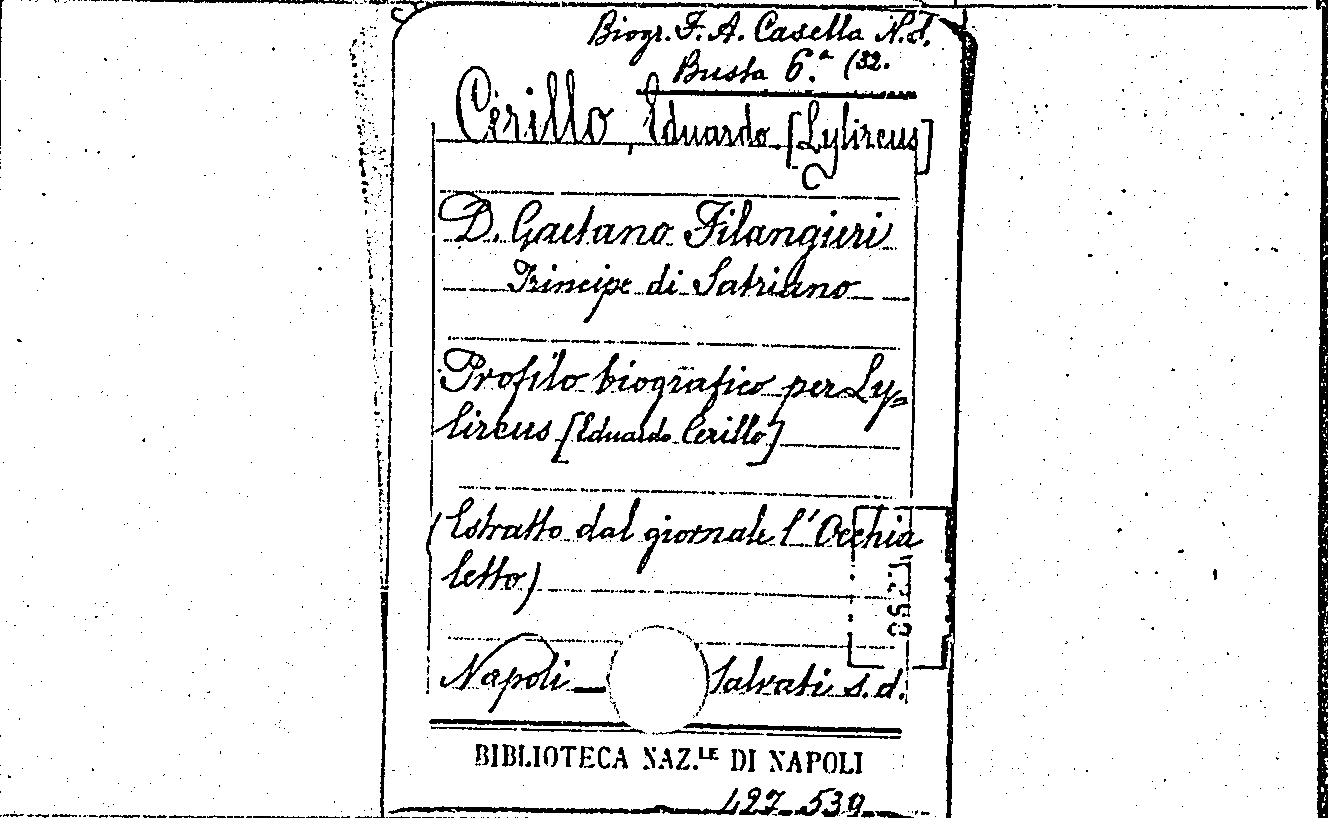 Biogr. F. A. Casella N.d.
Busta 6.ª (32.
Cerillo, Eduardo [Lylircus]
D. Gaetano Filangieri
Principe di Satriano
Profilo biografico per Ly=
lircus [Eduardo Cerillo]
(Estratto dal giornale l'Occhia
letto)
Napoli – Salvati s.d.
BIBLIOTECA NAZ.LE DI NAPOLI
427539